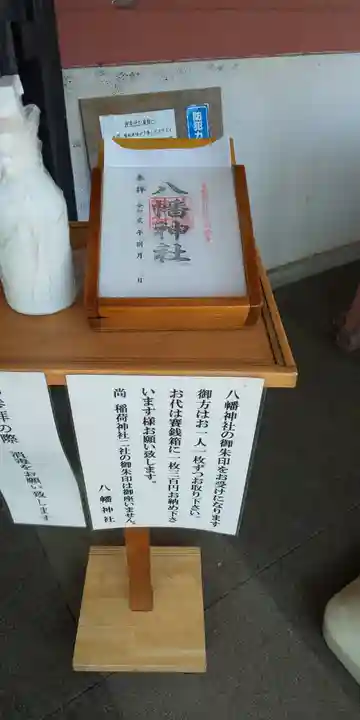 防犯カ
参拝
八幡神社
年 月 日
八幡神社の御朱印をお受けになります
御方はお一人一枚ずつお取り下さい。
お代は賽銭箱に一枚三百円お納め下さ
います様お願い致します。
尚 稲荷神社二社の御朱印は御座いません。
八幡神社
参拝の際
消毒をお願い致します